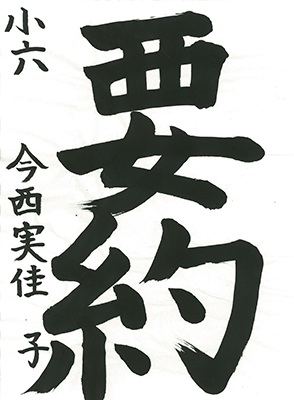 要約
小六
今西実佳子